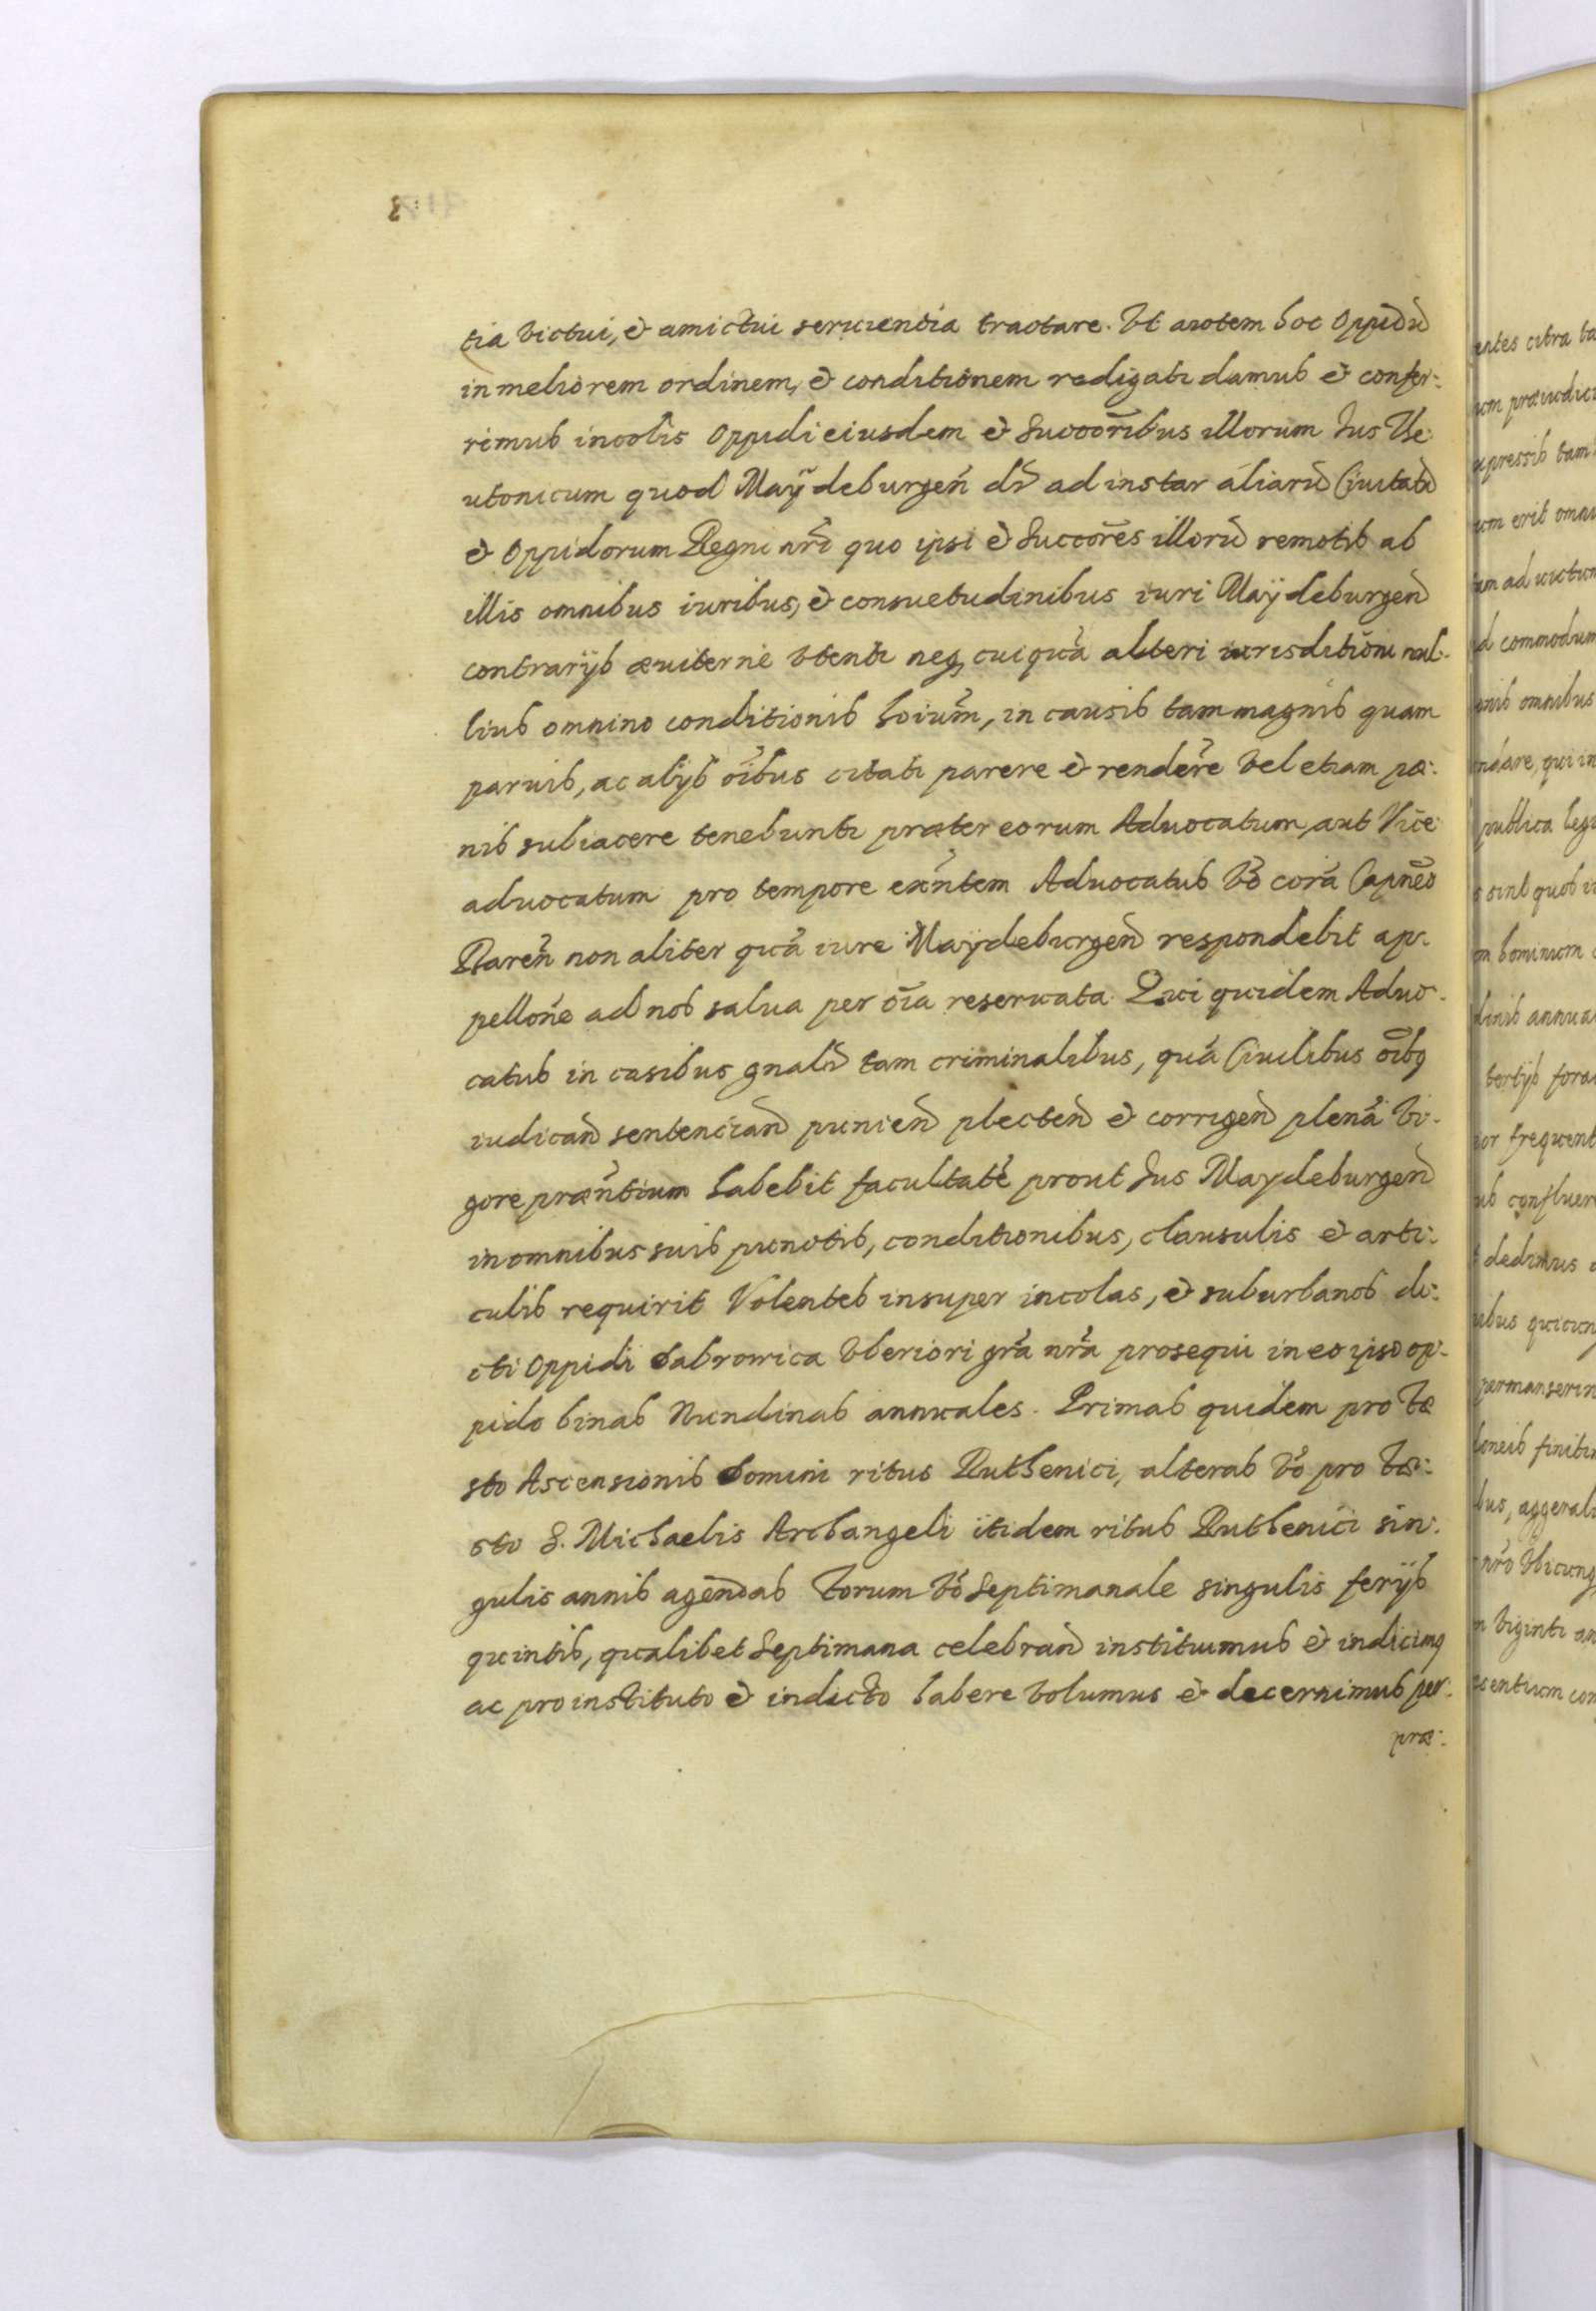 tia victui, et amictui seruientia tractare. Vt autem hoc Oppidũ
in meliorem ordinem, et conditionem redigatr damus et confer:
rimus incolis Oppidi eiusdem et Succoribus illorum Jus The
utonicum quod Maydeburgen̄ dr̄ ad instar aliarũ Ciuitatũ
et Oppidorum Regni nr̃i quo ipsi et Succores illorũ remotis ab
illis omnibus iuribus, et consuetudinibus iuri Maydeburgen̄
contrarijs æuiterne vtentr neq, cuiquã alteri iurisditioni nul:
lius omnino conditionis hoium̃, in causis tam magnis quam
paruis, ac alijs oĩbus citati parere et rendere vel etiam pœ:
nis subiacere tenebuntr præter eorum Aduocatum, aut Vice
aduocatum pro tempore exñtem Aduocatus vo corã Capneo
Haren̄ non aliter quã iure Maydeburgen̄ respondebit ap:
pellone ad nos salua per oĩa reseruata. Qui quidem Aduo:
catus in casibus gnalr tam criminalibus, quã Ciuilibus oĩbq
iudican̄ sentencian̄ punien̄ plecten̄ et corrigen̄ plenã vi:
gore præñtium habebit facultatẽ prout Jus Maydeburgen̄
in omnibus suis punctis, conditionibus, clausulis et arti:
culis requirit Volentes insuper incolas, et suburbanos di:
cti Oppidi Dabrowica vberiori gr̃a nr̃a prosequi in eo ipso op:
pido binas Nundinas annuales. Primas quidem pro Fe
sto Ascensionis Domini ritus Ruthenici, alteras vo pro Fe:
sto S. Michaelis Archangeli itidem ritus Ruthenici sin:
gulis annis agendas Forum vo Septimanale singulis ferijs
quintis, qualibet Septimana celebran̄ instituimus et indicimq
ac pro instituto et indicto habere volumus et decernimus per:
præ: